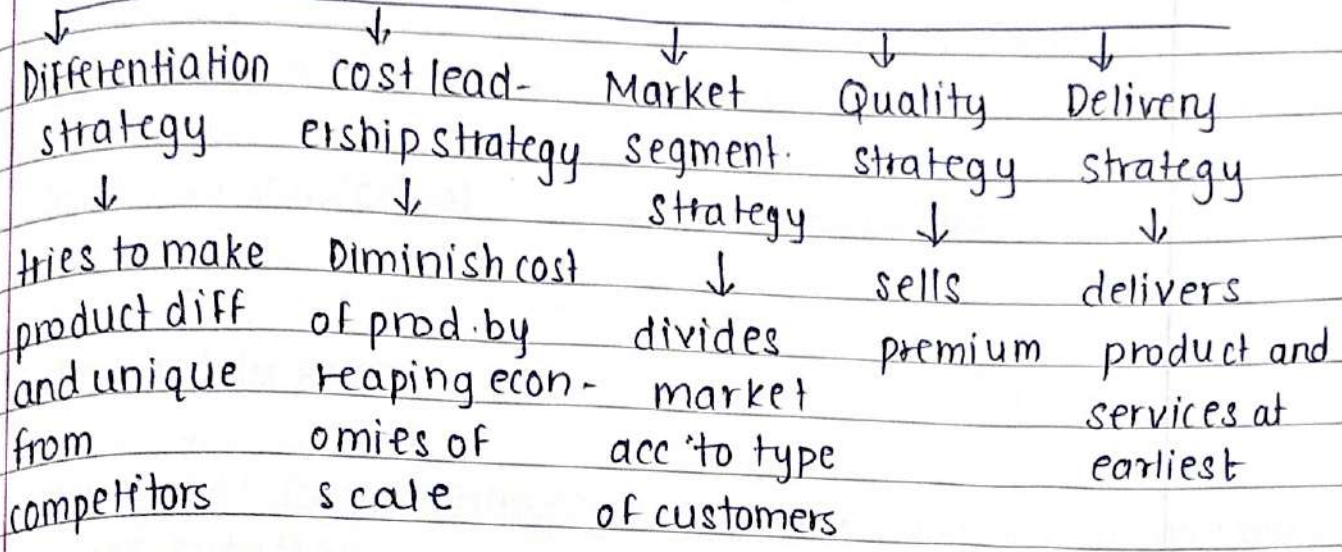 Differentiation
strategy
↓
tries to make
product diff
and unique
from
competitors
cost lead-
ership strategy
↓
Diminish cost
of prod. by
reaping econ-
omies of
scale
Market
segment.
strategy
↓
divides
market
acc to type
of customers
Quality
strategy
↓
sells
premium
Delivery
strategy
↓
delivers
product and
services at
earliest